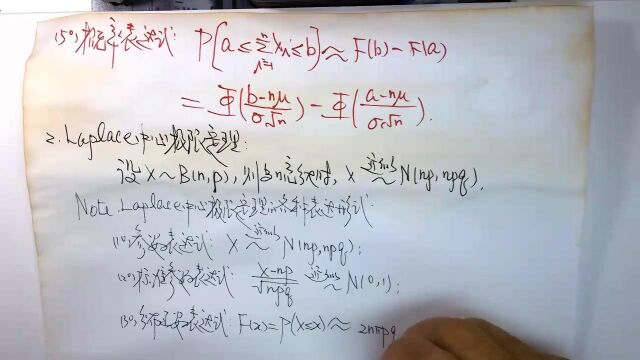 (5°) 概率表达式: P{a ≤ ∑ᵢ₌₁ⁿ Xᵢ ≤ b} ≈ F(b) − F(a)
= Φ((b−nμ)/(σ√n)) − Φ((a−nμ)/(σ√n)).
2. Laplace中心极限定理:
设 X ~ B(n,p), 则当n充分大时, X ~(近似) N(np, npq).
Note. Laplace中心极限定理的各种表达形式:
(1°) 参数表达式: X ~(近似) N(np, npq);
(2°) 标准参数表达式: (X−np)/√npq ~(近似) N(0,1);
(3°) 分布函数表达式: F(x) = P(X≤x) ≈ 2nπpq